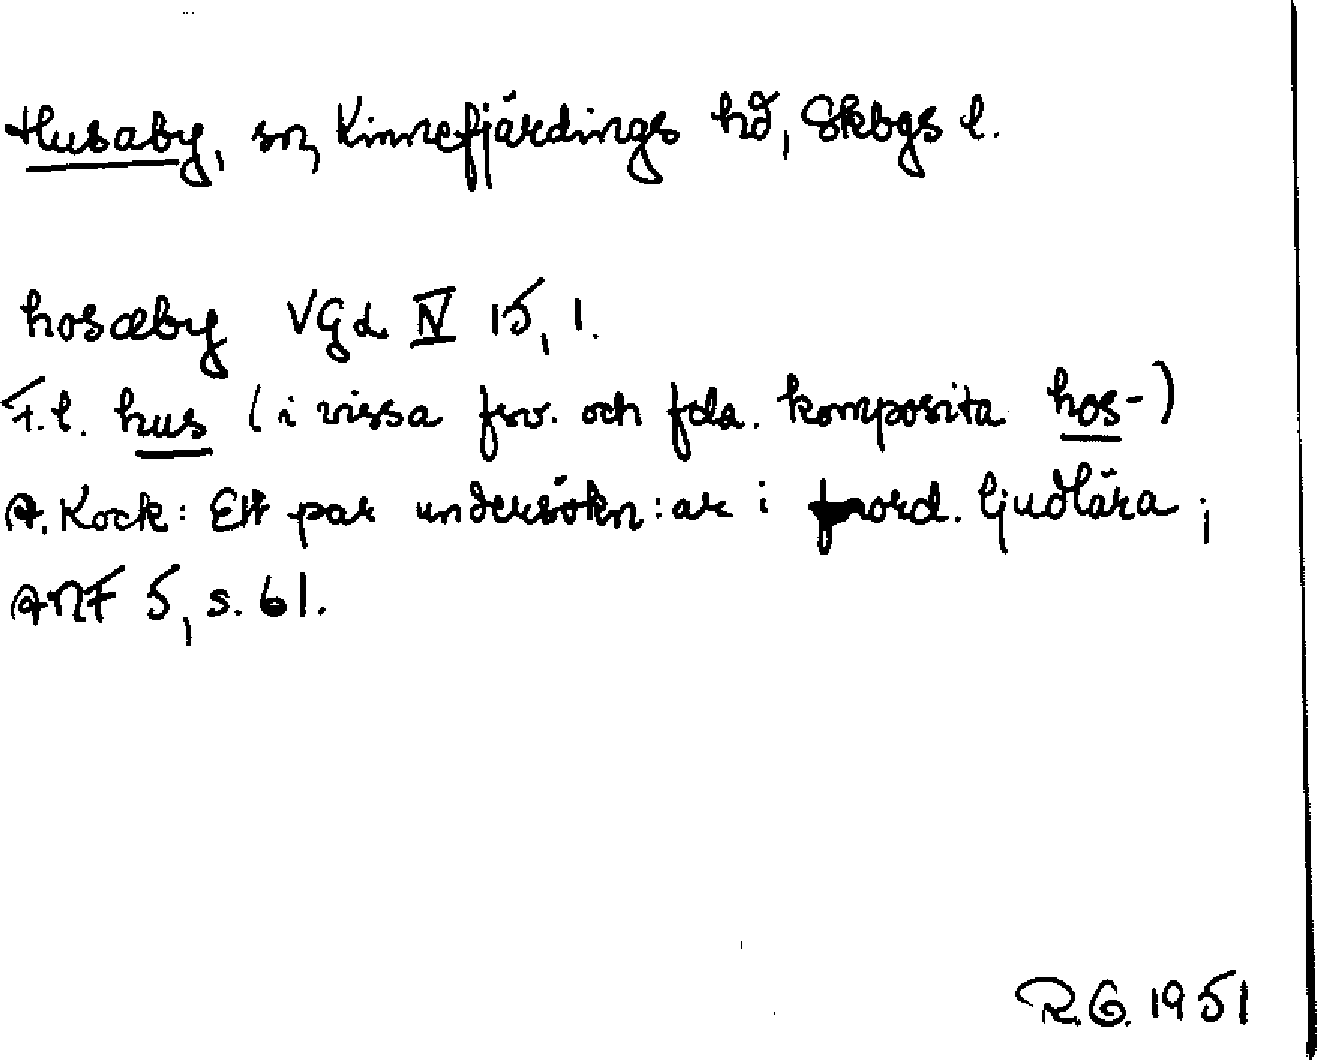 Husaby, sn, Kinnefjärdings hd, Skbgs l.
hosæby VGL IV 15, 1.
F.l. hus (i vissa fsv. och fda. komposita hos-)
A. Kock: Ett par undersökn:ar i nord. ljudlära;
ANF 5, s. 61.
R.G. 1951